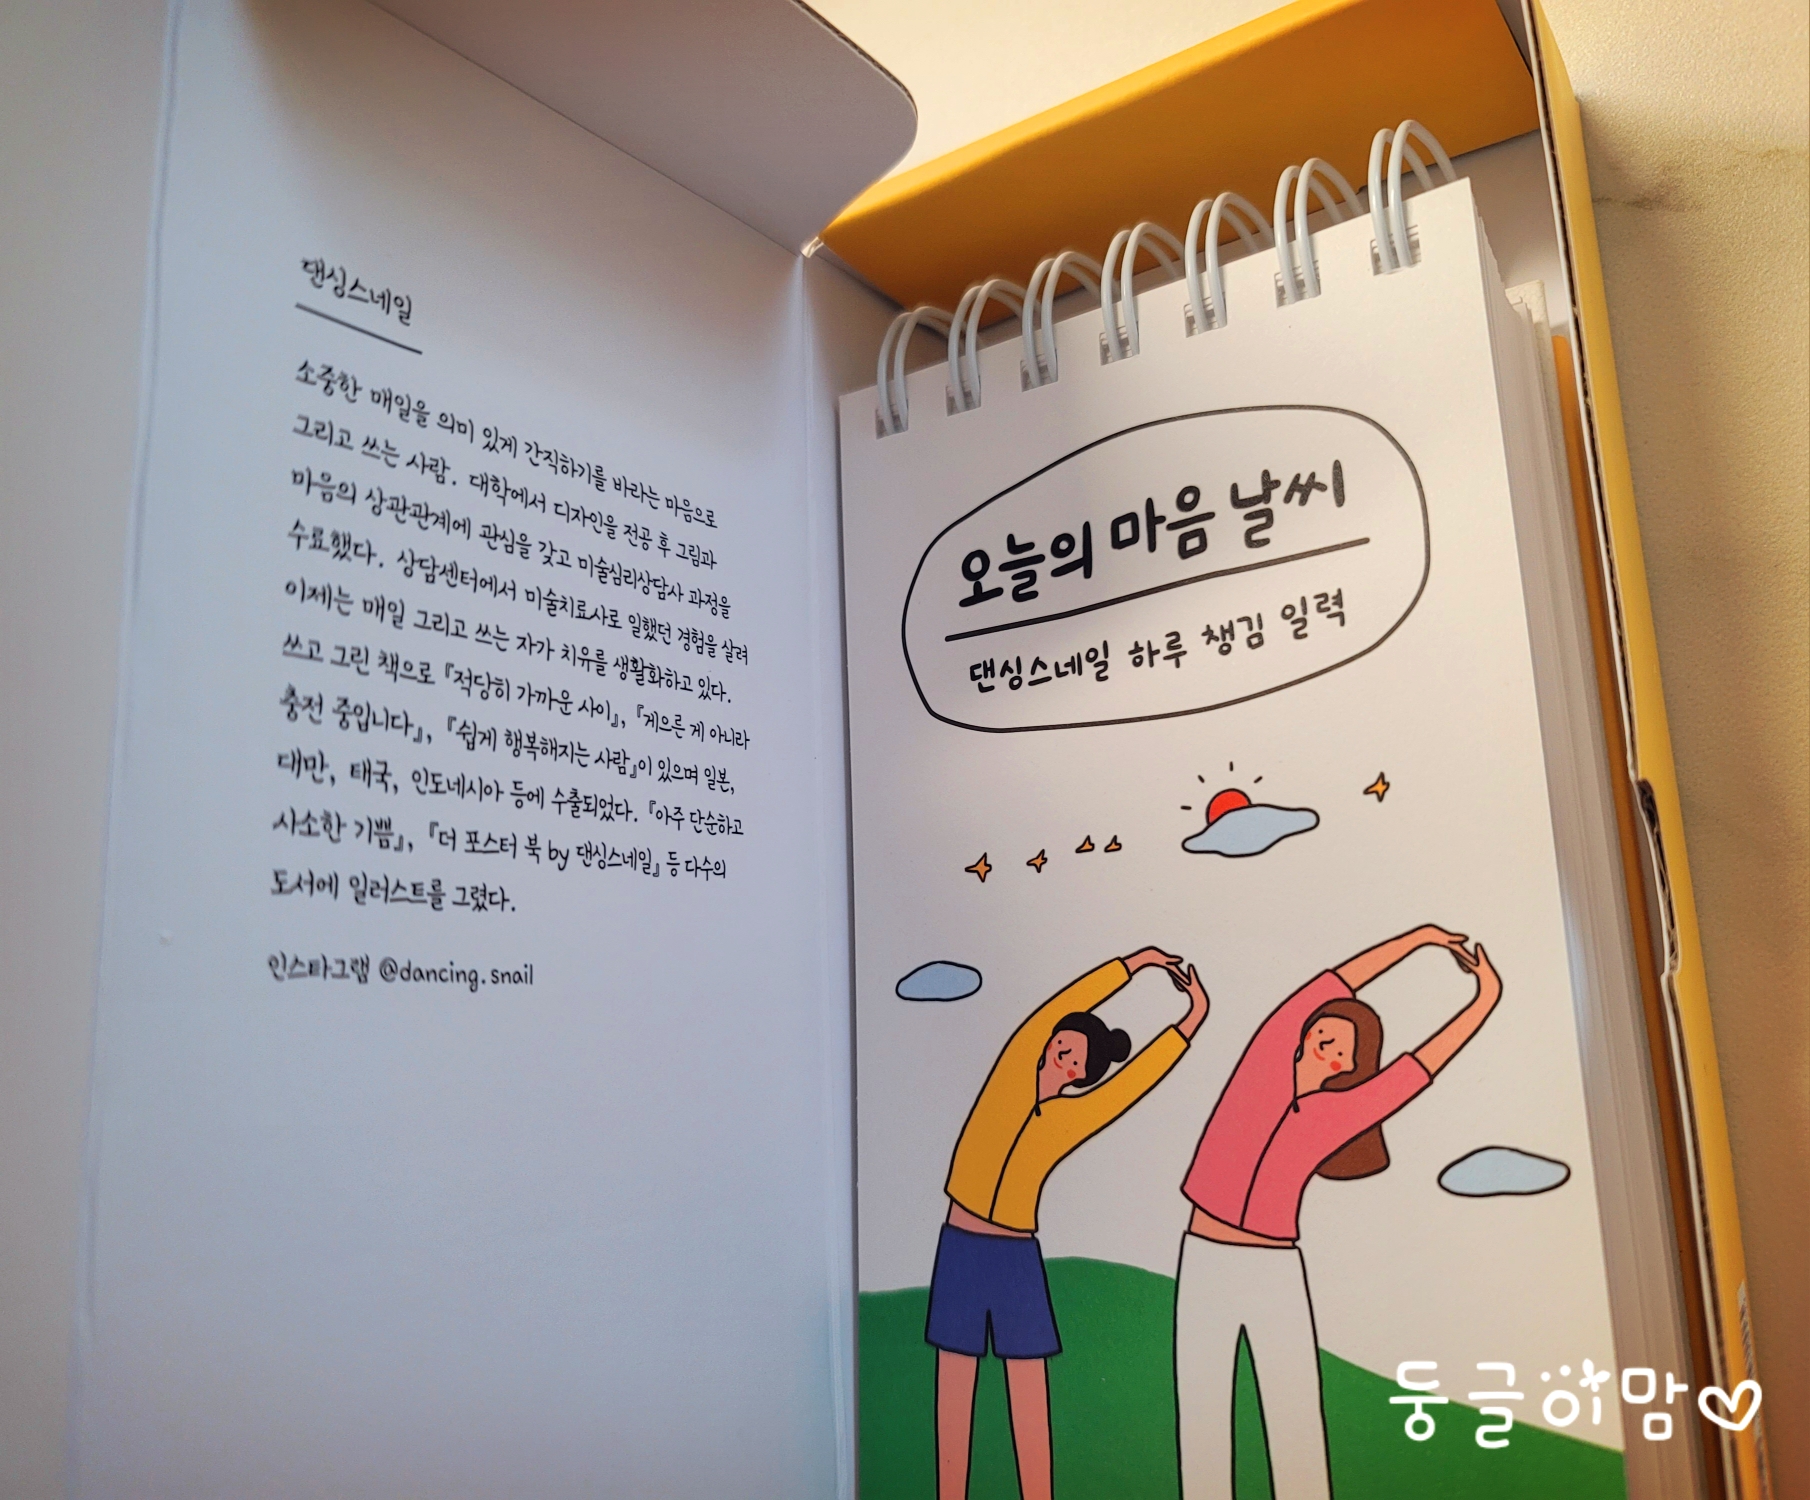 댄싱스네일
소중한 매일을 의미 있게 간직하기를 바라는 마음으로
그리고 쓰는 사람. 대학에서 디자인을 전공 후 그림과
마음의 상관관계에 관심을 갖고 미술심리상담사 과정을
수료했다. 상담센터에서 미술치료사로 일했던 경험을 살려
이제는 매일 그리고 쓰는 자가 치유를 생활화하고 있다.
쓰고 그린 책으로 『적당히 가까운 사이』, 『게으른 게 아니라
충전 중입니다』, 『쉽게 행복해지는 사람』이 있으며 일본,
대만, 태국, 인도네시아 등에 수출되었다. 『아주 단순하고
사소한 기쁨』, 『더 포스터 북 by 댄싱스네일』 등 다수의
도서에 일러스트를 그렸다.
인스타그램 @dancing.snail
오늘의 마음 날씨
댄싱스네일 하루 챙김 일력
둥글이맘